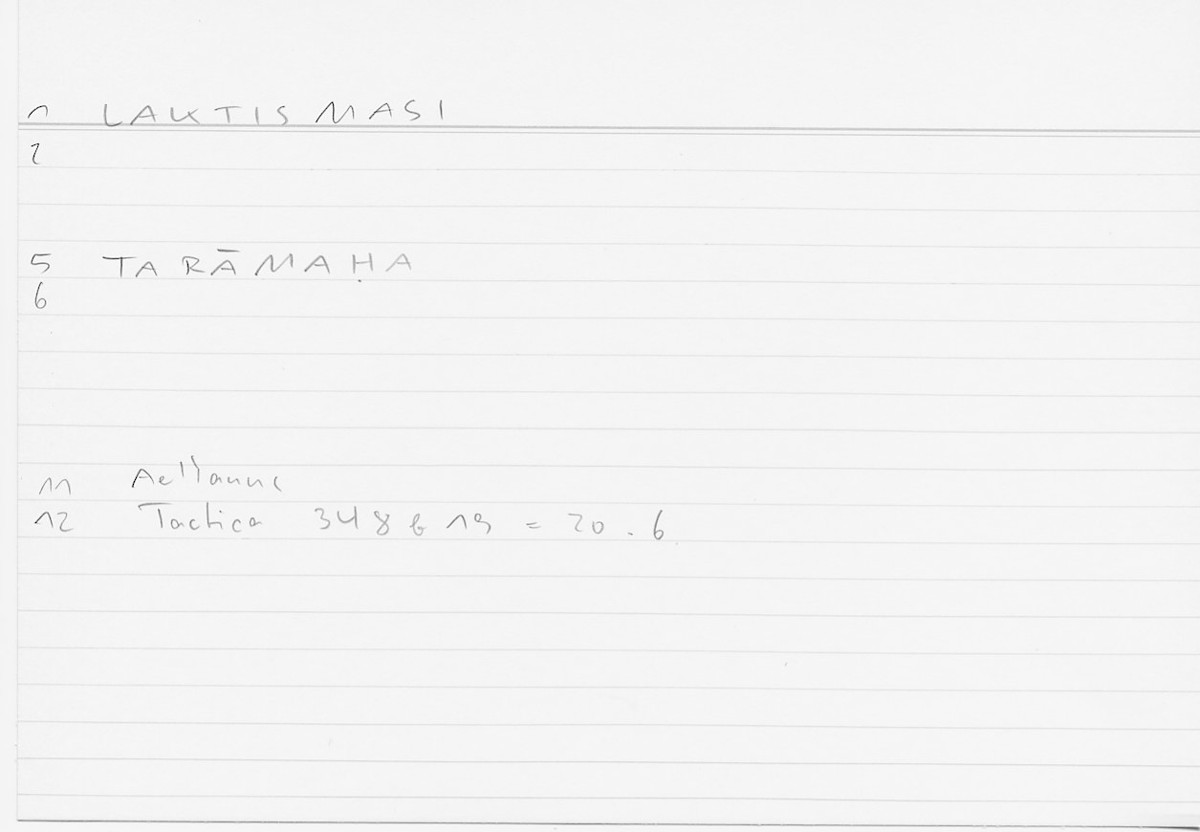 1 LAKTISMASI
2
5 TARĀMAḤA
6
11 Aelianus
12 Tactica 348 b 19 = 20.6